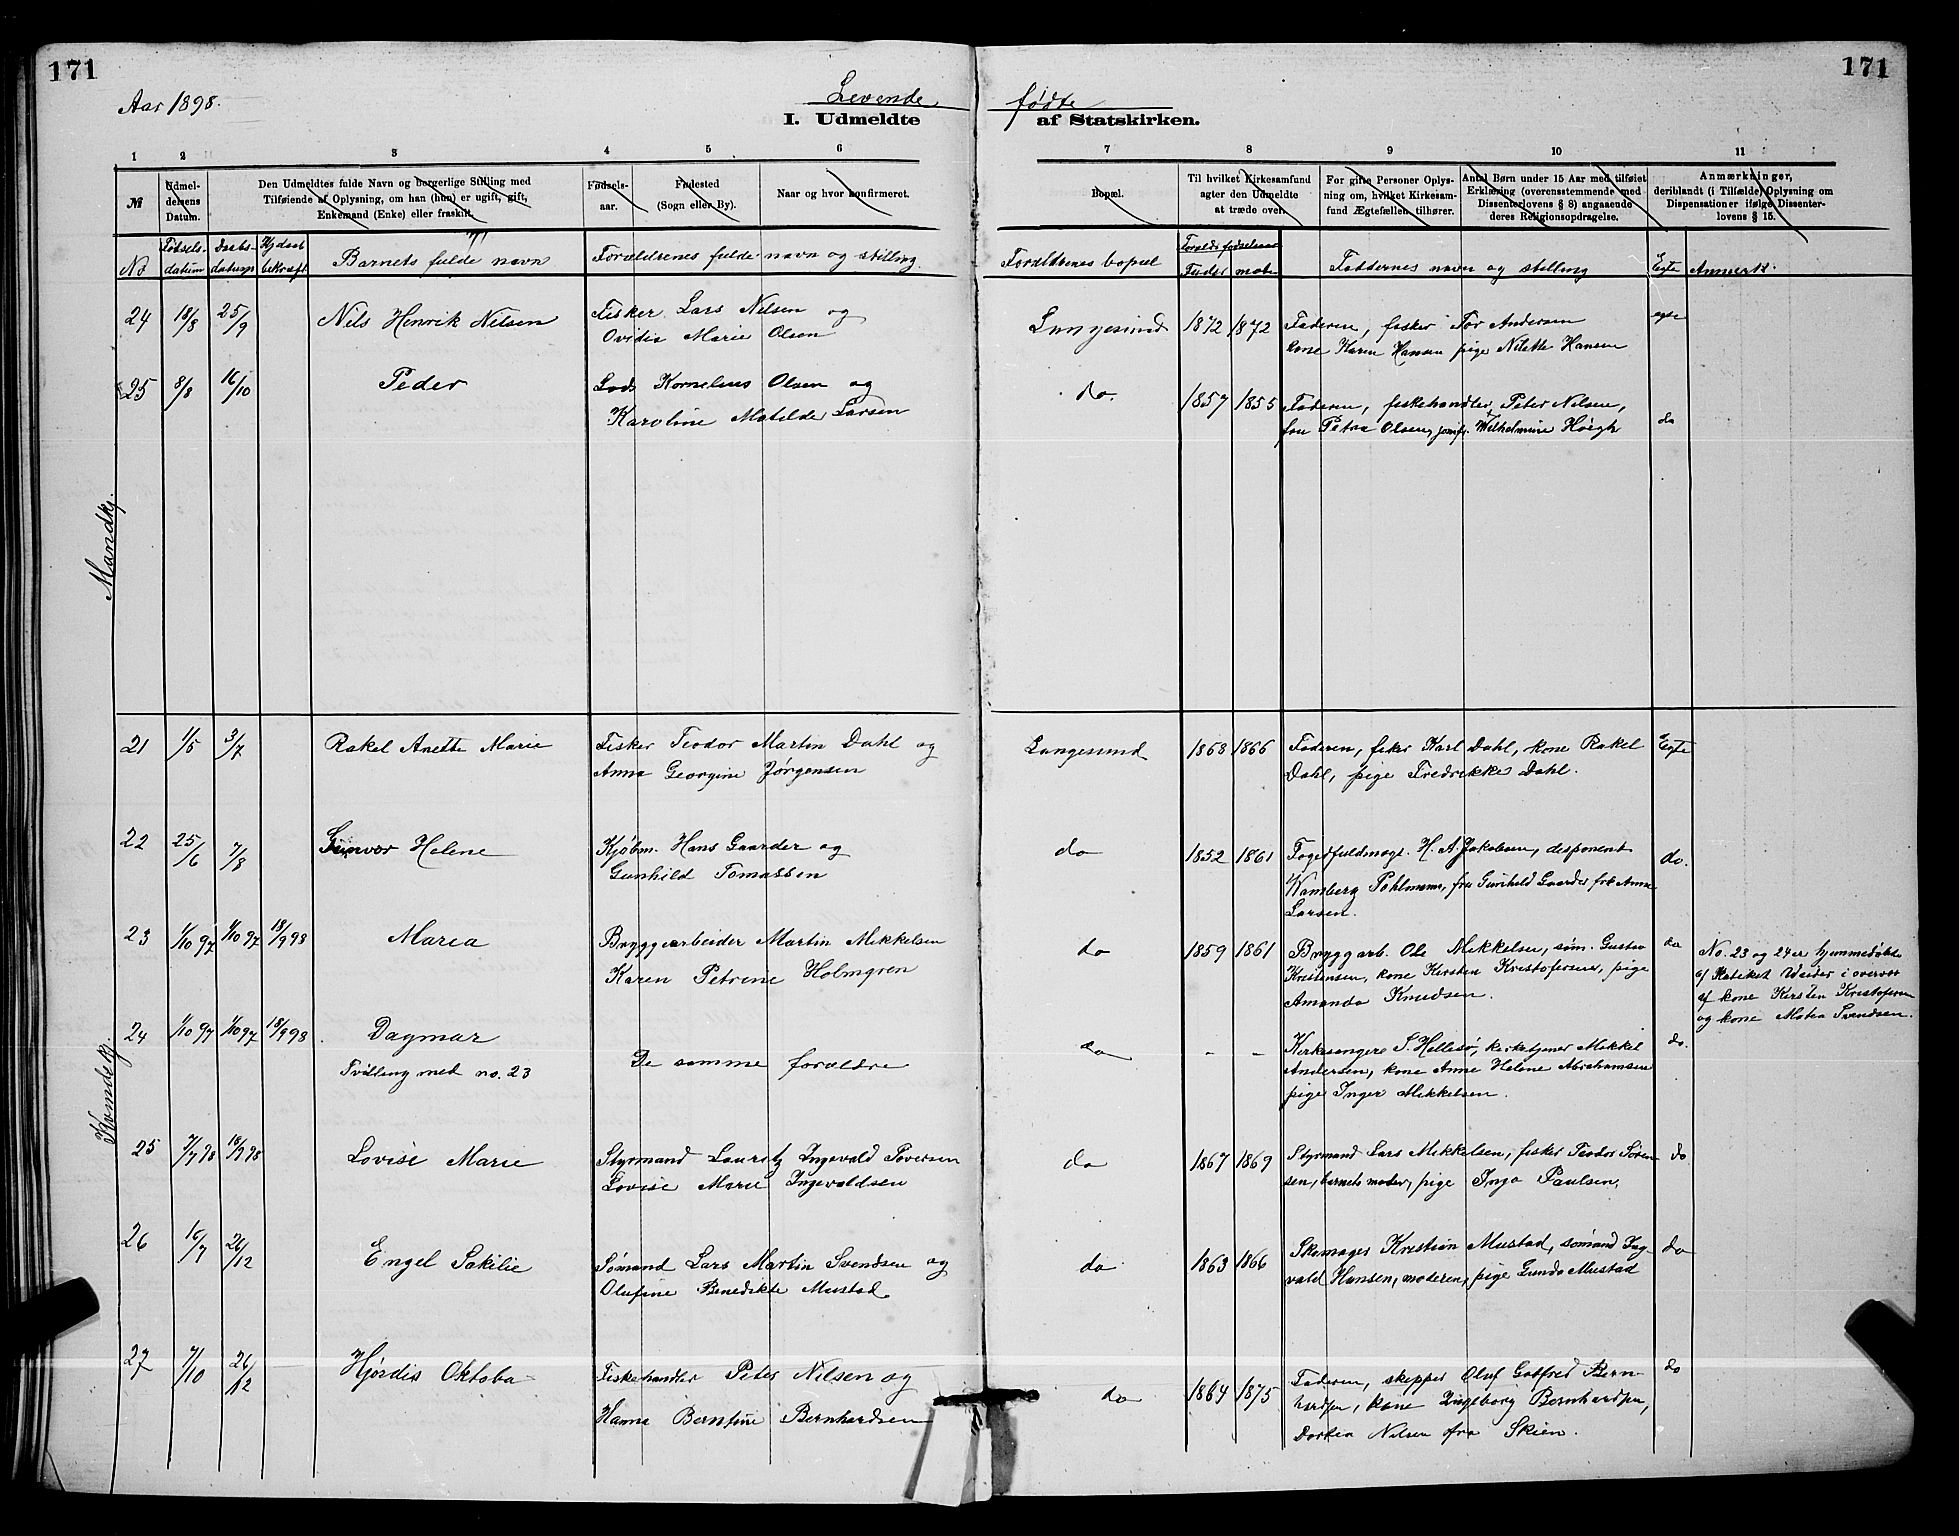 171
171
Aar 1898.
Levende fødte
I. Udmeldte af Statskirken.
1 2 3 4 5 6 7 8 9 10 11
№
Udmeldelsens Datum.
Den Udmeldtes fulde Navn og borgerlige Stilling med
Tilføiende af Oplysning, om han (hun) er ugift, gift,
Enkemand (Enke) eller fraskilt.
Fødselsaar.
Fødested
(Sogn eller By).
Naar og hvor konfirmeret.
Bopæl.
Til hvilket Kirkesamfund
agter den Udmeldte
at træde over.
For gifte Personer Oplysning
om, hvilket Kirkesamfund
Ægtefællen tilhører.
Antal Børn under 15 Aar med tilføiet
Erklæring (overensstemmende med
Dissenterlovens § 8) angaaende
deres Religionsopdragelse.
Anmærkninger,
deriblandt (i Tilfælde) Oplysning om
Dispensationer ifølge Dissenterlovens
§ 15.
No
Fødselsdatum
Daabsdatum
Hjdaab bekræft
Barnets fulde navn
Forældrenes fulde navn og stilling.
Forældrenes bopæl
Foræld. fødselsaar
Fader moder
Faddernes navn og stilling
Egte
Anmerk.
Mandkj.
24 18/8 25/9 Nils Henrik Nilsen
Fisker Lars Nilsen og
Ovidia Marie Olsen
Langesund 1872 1872
Faderen, fisker Tor Andersen
kone Karen Hansen pige Nilette Hansen
egte
25 8/8 16/10 Peder
Lods Kornelius Olsen og
Karoline Matilde Larsen
do. 1857 1855
Faderen, fiskehandler Peter Nilsen,
fru Petra Olsen, jomfr. Wilhelmine Høegh
do
Kvindekj.
21 1/5 3/7 Rakel Anette Marie
Fisker Teodor Martin Dahl og
Anna Georgine Jørgensen
Langesund 1868 1866
Faderen, fisker Karl Dahl, kone Rakel
Dahl, pige Fredrikke Dahl.
Egte
22 25/6 7/8 Gunvor Helene
Kjøbm. Hans Gaarder og
Gunhild Tomassen
do 1852 1861
Fogedfuldmægt. H. A. Jakobsen, disponent
Wamberg Pohlmann, fru Gunhild Gaarder frk Anna
Larsen.
do.
23 1/10 97 1/10 97 18/9 98 Maria
Bryggearbeider Martin Mikkelsen
Karen Petrine Holmgren
do 1859 1861
Bryggarb. Ole Mikkelsen, søm. Gustav
Kristensen, kone Kirsten Kristofersen, pige
Amanda Knudsen.
do
No. 23 og 24 er hjemmedøbte
af Ratiket Weider i overvær
af kone Kirsten Kristofersen
og kone Matea Svendsen.
24 1/10 97 1/10 97 18/9 98 Dagmar
Tvilling med no. 23
De samme forældre
do - -
Kirkesangere S. Hellesø, kirketjener Mikkel
Andersen, kone Anne Helene Abrahamsen
pige Inger Mikkelsen.
do.
25 7/7 98 18/9 98 Lovise Marie
Styrmand Lauritz Ingevald Toversen
Lovise Marie Ingevaldsen
do 1867 1869
Styrmand Lars Mikkelsen, fisker Teodor Sørensen,
barnets moder, pige Inga Paulsen.
do
26 16/7 26/12 Engel Sakilie
Sømand Lars Martin Svendsen og
Olufine Benedikte Mustad.
do 1863 1866
Skomager Kristian Mustad, sømand Ingvald
Hansen, moderen, pige Gunda Mustad
do
27 7/10 26/12 Hjørdis Oktoba
Fiskehandler Peter Nilsen og
Hanna Berntine Bernhardsen
do 1864 1875
Faderen, skipper Oluf Gotfred Bernhardsen,
kone Ingeborg Bernhardsen,
Dortea Nilsen fra Skien.
do